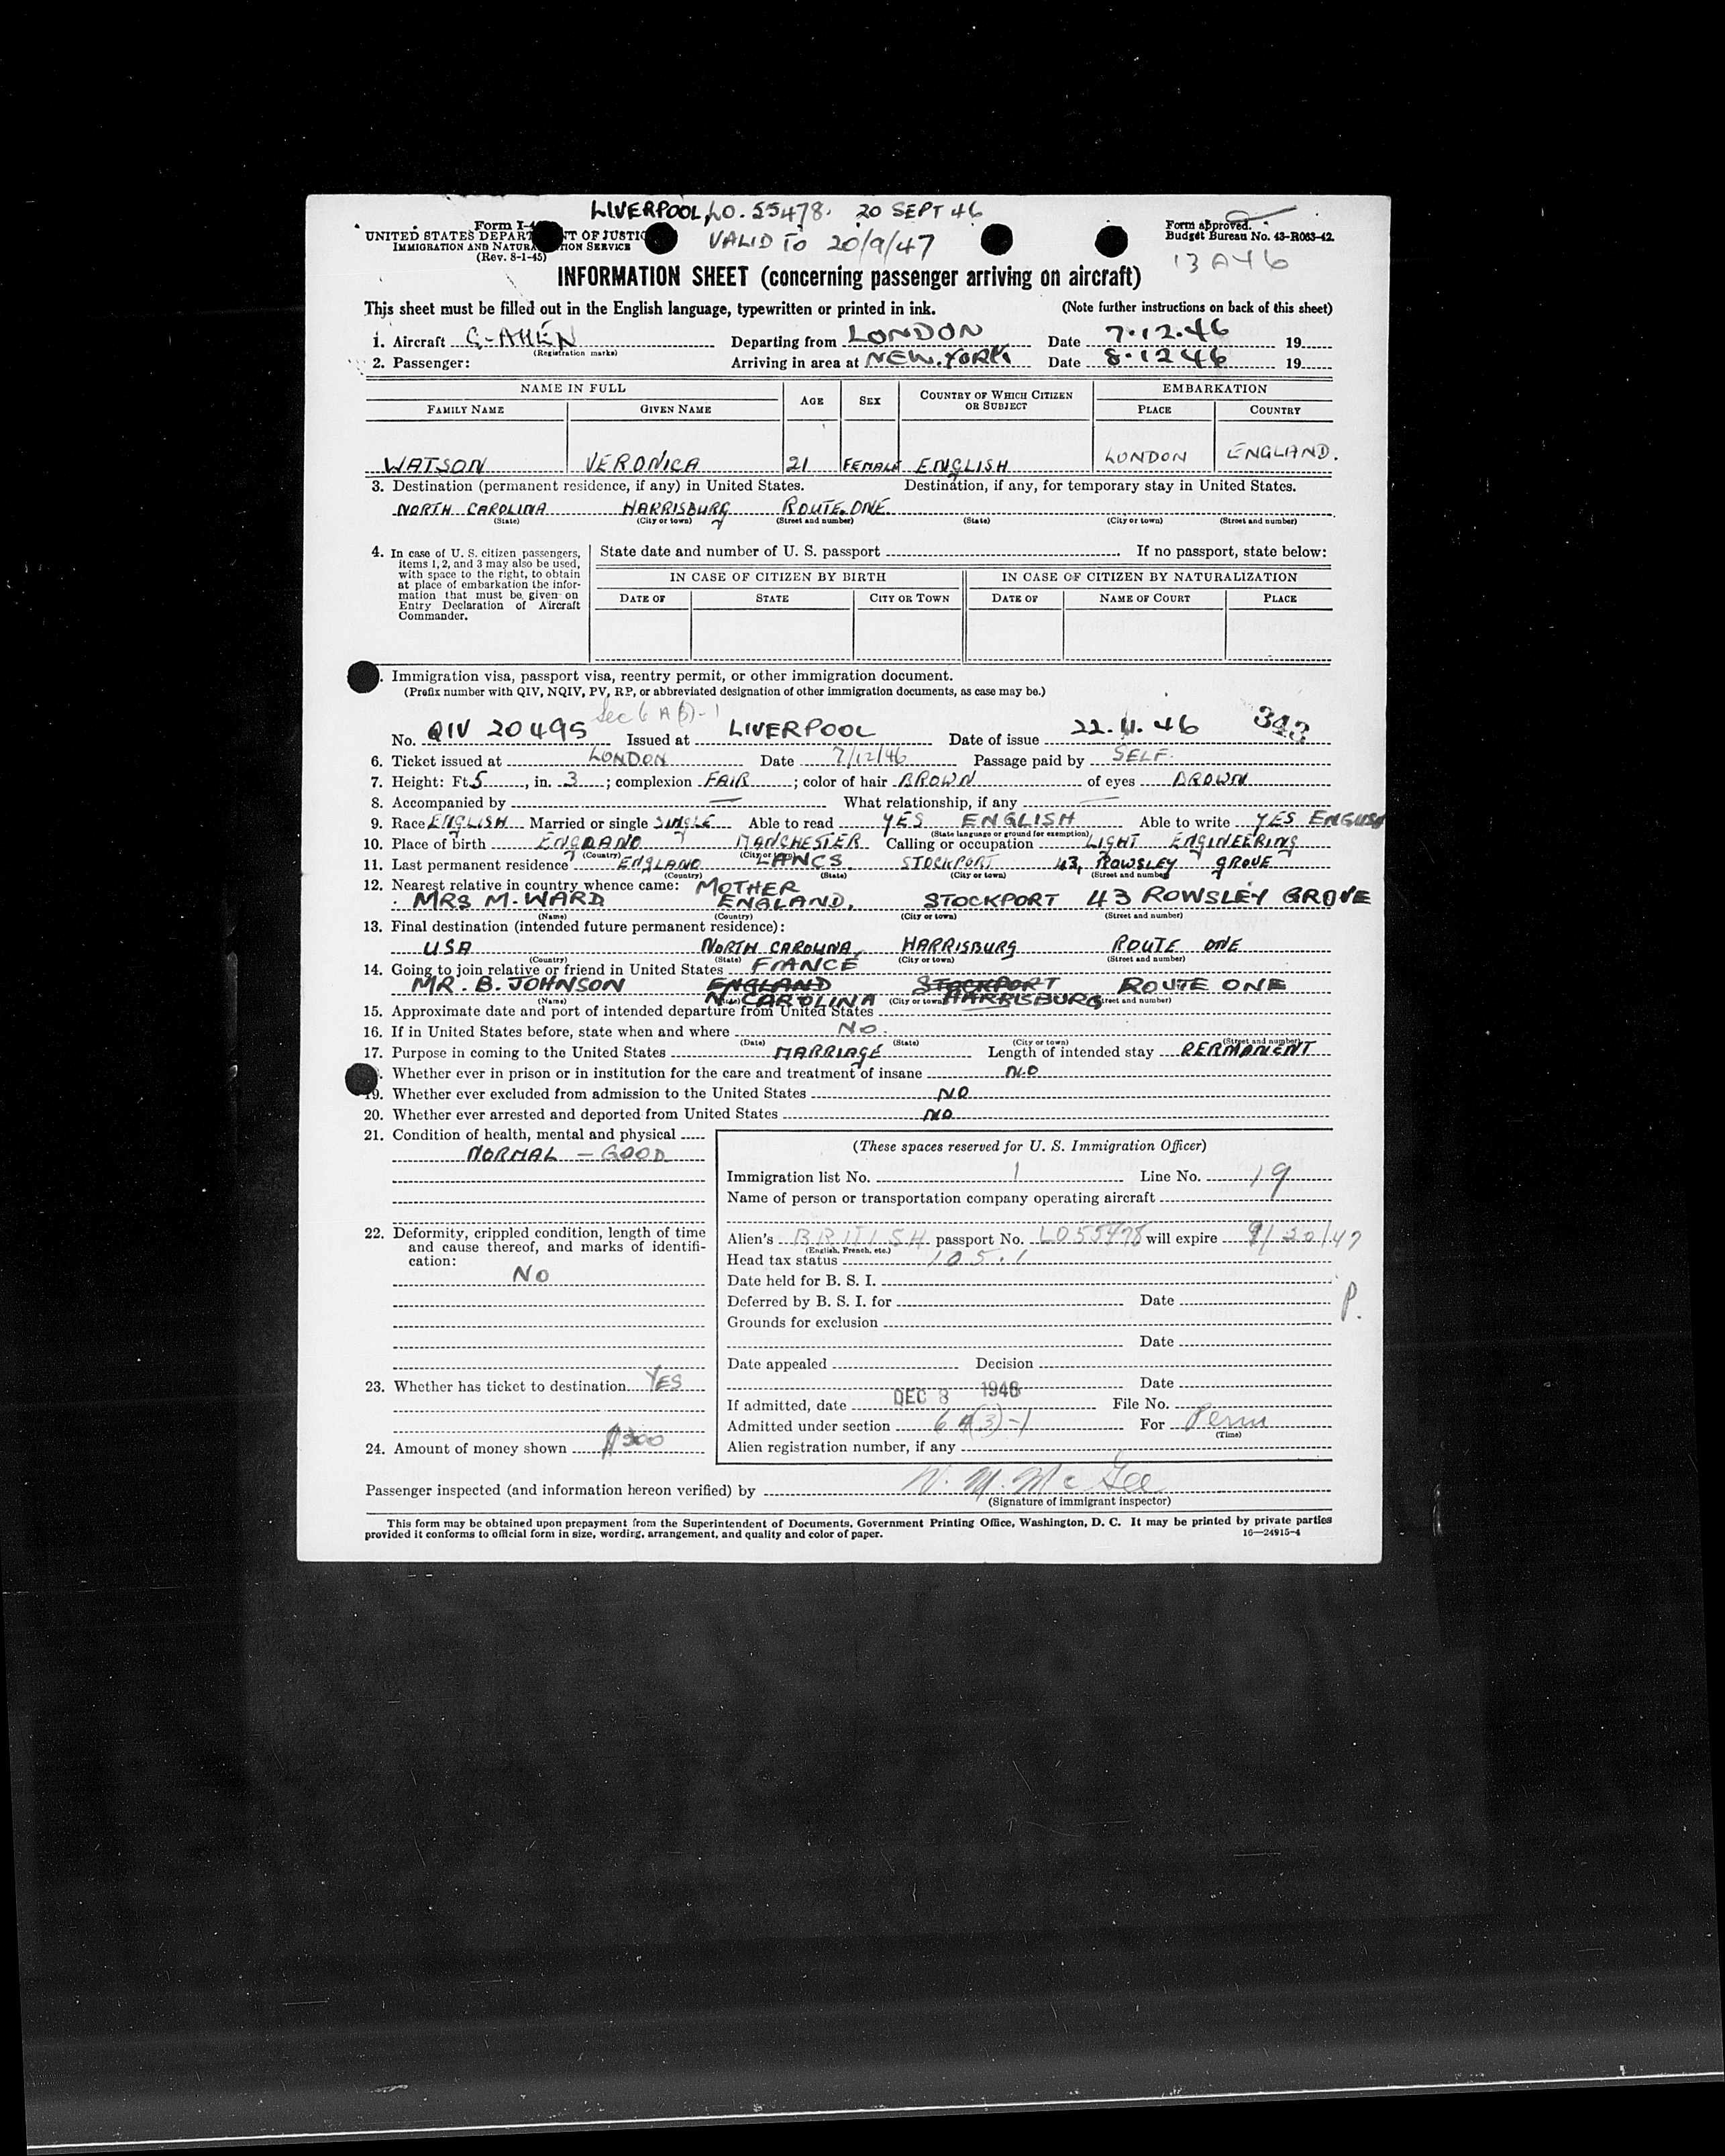 LIVERPOOL, LO. 55478. 20 SEPT 46
Form I-4
UNITED STATES DEPART T OF JUSTIC
IMMIGRATION AND NATURA TION SERVICE
(Rev. 8-1-45)
VALID TO 20/9/47
Form approved.
Budget Bureau No. 43-R063-42.
13 A46
INFORMATION SHEET (concerning passenger arriving on aircraft)
This sheet must be filled out in the English language, typewritten or printed in ink. (Note further instructions on back of this sheet)
1. Aircraft G-AHEN Departing from LONDON Date 7.12.46 19
(Registration marks)
2. Passenger: Arriving in area at NEW.YORK Date 8.12 46 19
NAME IN FULL AGE SEX COUNTRY OF WHICH CITIZEN OR SUBJECT EMBARKATION
FAMILY NAME GIVEN NAME PLACE COUNTRY
WATSON VERONICA 21 FEMALE ENGLISH LONDON ENGLAND.
3. Destination (permanent residence, if any) in United States. Destination, if any, for temporary stay in United States.
NORTH CAROLINA HARRISBURG ROUTE.ONE.
(State) (City or town) (Street and number) (State) (City or town) (Street and number)
4. In case of U. S. citizen passengers, items 1, 2, and 3 may also be used, with space to the right, to obtain at place of embarkation the information that must be given on Entry Declaration of Aircraft Commander.
State date and number of U. S. passport . If no passport, state below:
IN CASE OF CITIZEN BY BIRTH IN CASE OF CITIZEN BY NATURALIZATION
DATE OF STATE CITY OR TOWN DATE OF NAME OF COURT PLACE
. Immigration visa, passport visa, reentry permit, or other immigration document.
(Prefix number with QIV, NQIV, PV, RP, or abbreviated designation of other immigration documents, as case may be.)
Sec 6 A(3)-1
No. QIV 20495 Issued at LIVERPOOL Date of issue 22.11.46 343
6. Ticket issued at LONDON Date 7/12/46 Passage paid by SELF.
7. Height: Ft. 5, in. 3; complexion FAIR; color of hair BROWN of eyes BROWN
8. Accompanied by — What relationship, if any —
9. Race ENGLISH Married or single SINGLE Able to read YES ENGLISH Able to write YES ENGLISH
(State language or ground for exemption)
10. Place of birth ENGLAND MANCHESTER Calling or occupation LIGHT ENGINEERING
(Country) (City or town)
11. Last permanent residence ENGLAND LANCS. STOCKPORT 43, ROWSLEY GROVE
(Country) (State) (City or town) (Street and number)
12. Nearest relative in country whence came: MOTHER
MRS M. WARD ENGLAND, STOCKPORT 43 ROWSLEY GROVE
(Name) (Country) (City or town) (Street and number)
13. Final destination (intended future permanent residence):
USA NORTH CAROLINA, HARRISBURG ROUTE ONE
(Country) (State) (City or town) (Street and number)
14. Going to join relative or friend in United States FIANCE
MR. B. JOHNSON ENGLAND STOCKPORT ROUTE ONE
N. CAROLINA HARRISBURG
(Name) (State) (City or town) (Street and number)
15. Approximate date and port of intended departure from United States
16. If in United States before, state when and where NO.
(Date) (State) (City or town) (Street and number)
17. Purpose in coming to the United States MARRIAGE Length of intended stay PERMANENT
. Whether ever in prison or in institution for the care and treatment of insane NO
19. Whether ever excluded from admission to the United States NO
20. Whether ever arrested and deported from United States NO
21. Condition of health, mental and physical
NORMAL – GOOD
22. Deformity, crippled condition, length of time and cause thereof, and marks of identification:
NO
23. Whether has ticket to destination YES
24. Amount of money shown $300
(These spaces reserved for U. S. Immigration Officer)
Immigration list No. 1 Line No. 19
Name of person or transportation company operating aircraft
Alien's BRITISH passport No. LO55478 will expire 9/20/47
(English, French, etc.)
Head tax status 105.1
Date held for B. S. I.
Deferred by B. S. I. for Date P.
Grounds for exclusion
Date
Date appealed Decision
Date
If admitted, date DEC 8 1946 File No.
Admitted under section 6 A(3)-1 For Perm
(Time)
Alien registration number, if any
Passenger inspected (and information hereon verified) by N. M. McGee
(Signature of immigrant inspector)
This form may be obtained upon prepayment from the Superintendent of Documents, Government Printing Office, Washington, D. C. It may be printed by private parties
provided it conforms to official form in size, wording, arrangement, and quality and color of paper. 16—24915-4